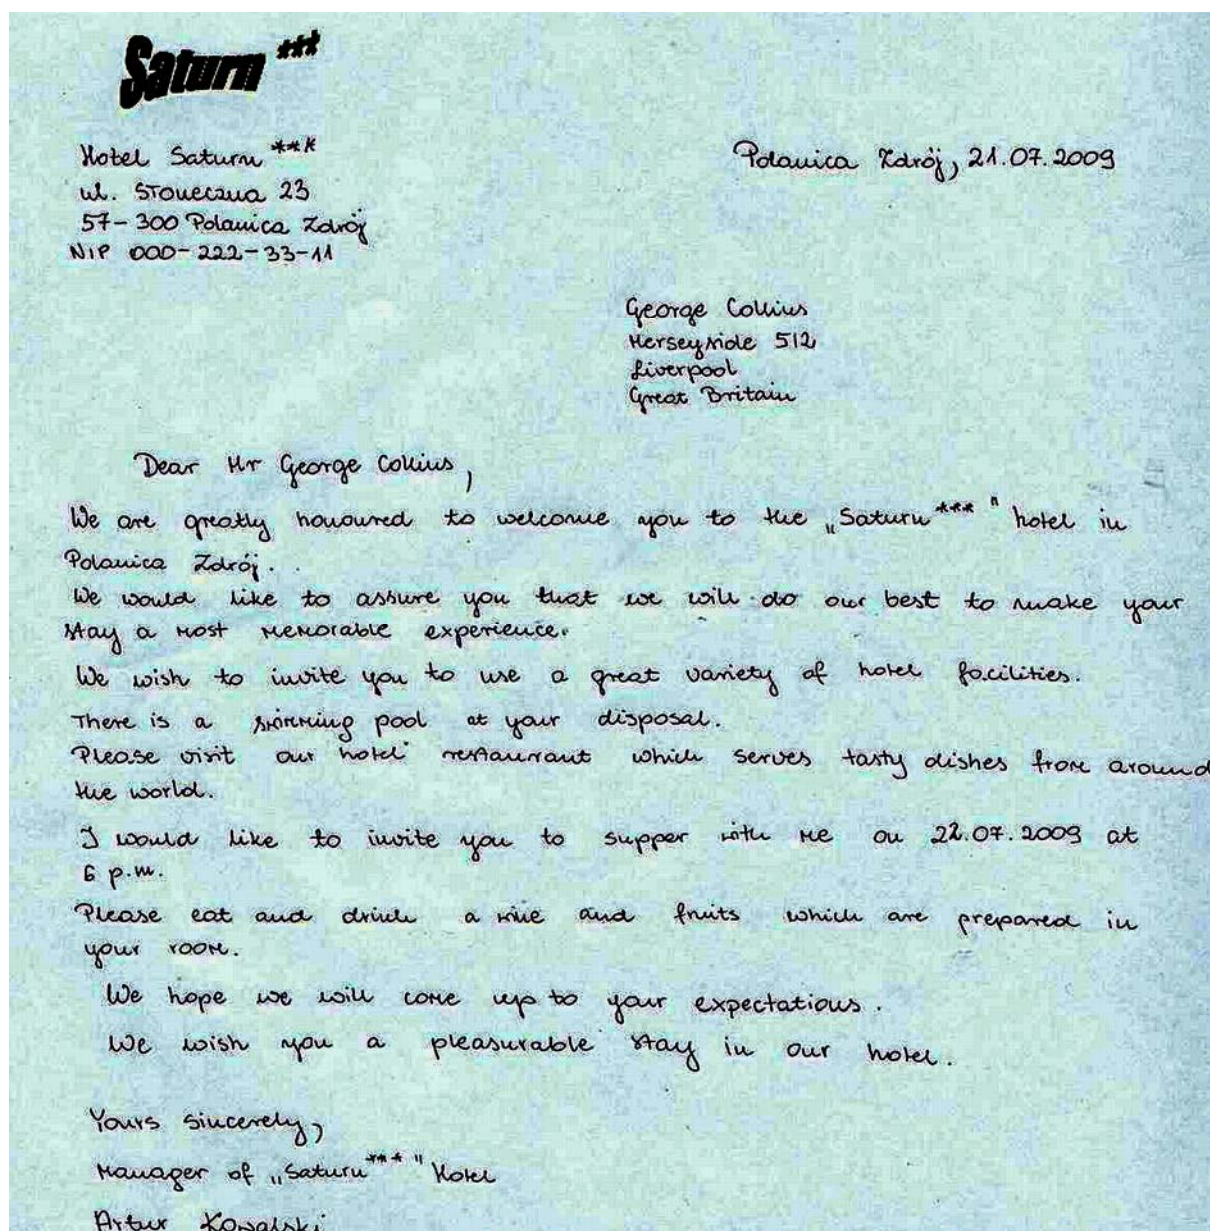 Saturn ***
Hotel Saturn ***
ul. Słoneczna 23
57-300 Polanica Zdrój
NIP 000-222-33-11
Polanica Zdrój, 21.07.2009
George Collins
Merseyside 512
Liverpool
Great Britain
Dear Mr George Collins,
We are greatly honoured to welcome you to the „Saturn *** " hotel in
Polanica Zdrój.
We would like to assure you that we will do our best to make your
stay a most memorable experience.
We wish to invite you to use a great variety of hotel facilities.
There is a swimming pool at your disposal.
Please visit our hotel restaurant which serves tasty dishes from around
the world.
I would like to invite you to supper with me on 22.07.2009 at
6 p.m.
Please eat and drink a wine and fruits which are prepared in
your room.
We hope we will come up to your expectations.
We wish you a pleasurable stay in our hotel.
Yours sincerely,
Manager of „Saturn *** " Hotel
Artur Kowalski